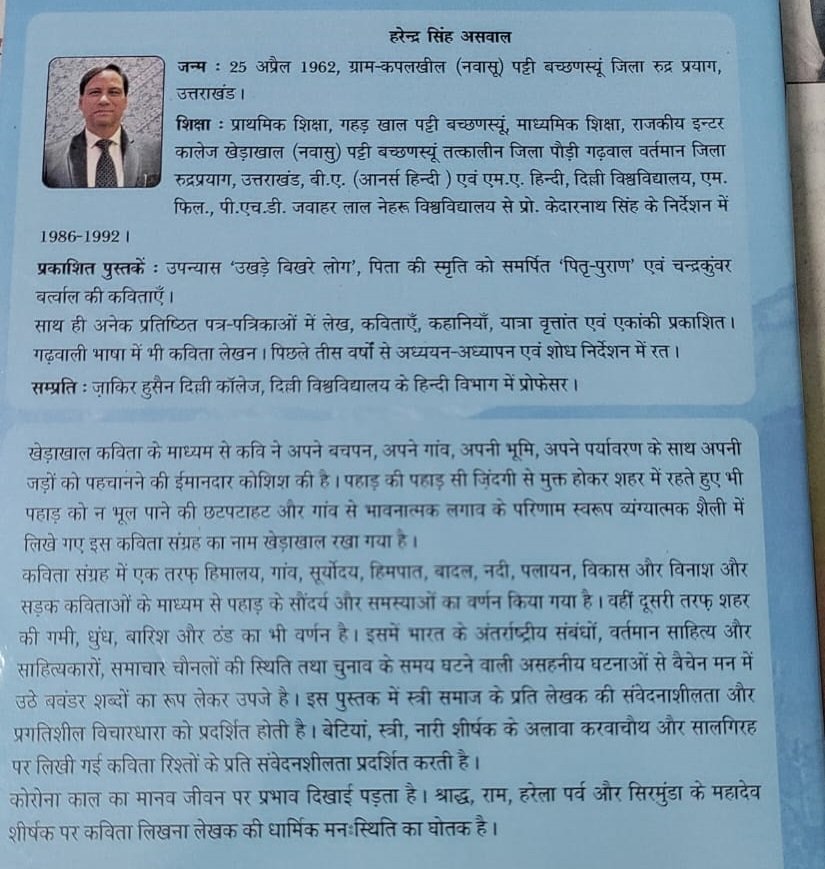 हरेन्द्र सिंह असवाल
जन्म : 25 अप्रैल 1962, ग्राम-कपलखील (नवासू) पट्टी बच्छणस्यूं जिला रुद्र प्रयाग,
उत्तराखंड।
शिक्षा : प्राथमिक शिक्षा, गहड़ खाल पट्टी बच्छणस्यूं, माध्यमिक शिक्षा, राजकीय इन्टर
कालेज खेड़ाखाल (नवासु) पट्टी बच्छणस्यूं तत्कालीन जिला पौड़ी गढ़वाल वर्तमान जिला
रुद्रप्रयाग, उत्तराखंड, बी.ए. (आनर्स हिन्दी ) एवं एम.ए. हिन्दी, दिल्ली विश्वविद्यालय, एम.
फिल., पी.एच.डी. जवाहर लाल नेहरू विश्वविद्यालय से प्रो. केदारनाथ सिंह के निर्देशन में
1986-1992।
प्रकाशित पुस्तकें : उपन्यास ‘उखड़े बिखरे लोग’, पिता की स्मृति को समर्पित ‘पितृ-पुराण’ एवं चन्द्रकुंवर
बर्त्वाल की कविताएँ।
साथ ही अनेक प्रतिष्ठित पत्र-पत्रिकाओं में लेख, कविताएँ, कहानियाँ, यात्रा वृत्तांत एवं एकांकी प्रकाशित।
गढ़वाली भाषा में भी कविता लेखन। पिछले तीस वर्षों से अध्ययन-अध्यापन एवं शोध निर्देशन में रत।
सम्प्रति : ज़ाकिर हुसैन दिल्ली कॉलेज, दिल्ली विश्वविद्यालय के हिन्दी विभाग में प्रोफेसर।
खेड़ाखाल कविता के माध्यम से कवि ने अपने बचपन, अपने गांव, अपनी भूमि, अपने पर्यावरण के साथ अपनी
जड़ों को पहचानने की ईमानदार कोशिश की है। पहाड़ की पहाड़ सी ज़िंदगी से मुक्त होकर शहर में रहते हुए भी
पहाड़ को न भूल पाने की छटपटाहट और गांव से भावनात्मक लगाव के परिणाम स्वरूप व्यंग्यात्मक शैली में
लिखे गए इस कविता संग्रह का नाम खेड़ाखाल रखा गया है।
कविता संग्रह में एक तरफ़ हिमालय, गांव, सूर्योदय, हिमपात, बादल, नदी, पलायन, विकास और विनाश और
सड़क कविताओं के माध्यम से पहाड़ के सौंदर्य और समस्याओं का वर्णन किया गया है। वहीं दूसरी तरफ़ शहर
की गमी, धुंध, बारिश और ठंड का भी वर्णन है। इसमें भारत के अंतर्राष्ट्रीय संबंधों, वर्तमान साहित्य और
साहित्यकारों, समाचार चौनलों की स्थिति तथा चुनाव के समय घटने वाली असहनीय घटनाओं से बैचेन मन में
उठे बवंडर शब्दों का रूप लेकर उपजे है। इस पुस्तक में स्त्री समाज के प्रति लेखक की संवेदनाशीलता और
प्रगतिशील विचारधारा को प्रदर्शित होती है। बेटियां, स्त्री, नारी शीर्षक के अलावा करवाचौथ और सालगिरह
पर लिखी गई कविता रिश्तों के प्रति संवेदनशीलता प्रदर्शित करती है।
कोरोना काल का मानव जीवन पर प्रभाव दिखाई पड़ता है। श्राद्ध, राम, हरेला पर्व और सिरमुंडा के महादेव
शीर्षक पर कविता लिखना लेखक की धार्मिक मनःस्थिति का द्योतक है।